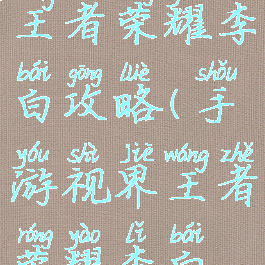 王者荣耀李
bái gōng lüè shǒu
白攻略(手
yóu shì jiè wáng zhě
游视界王者
róng yào lǐ bái
荣耀李白